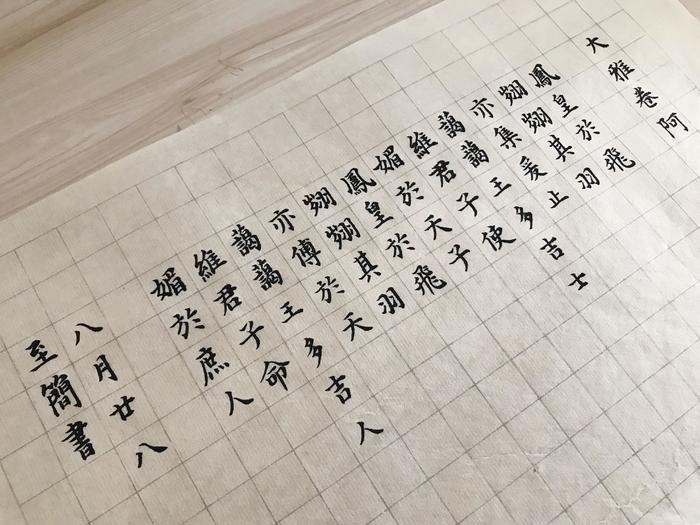 大雅卷阿
鳳皇於飛
翽翽其羽
亦集爰止
藹藹王多吉士
維君子使
媚於天子
鳳皇於飛
翽翽其羽
亦傅於天
藹藹王多吉人
維君子命
媚於庶人
八月廿八
至簡書